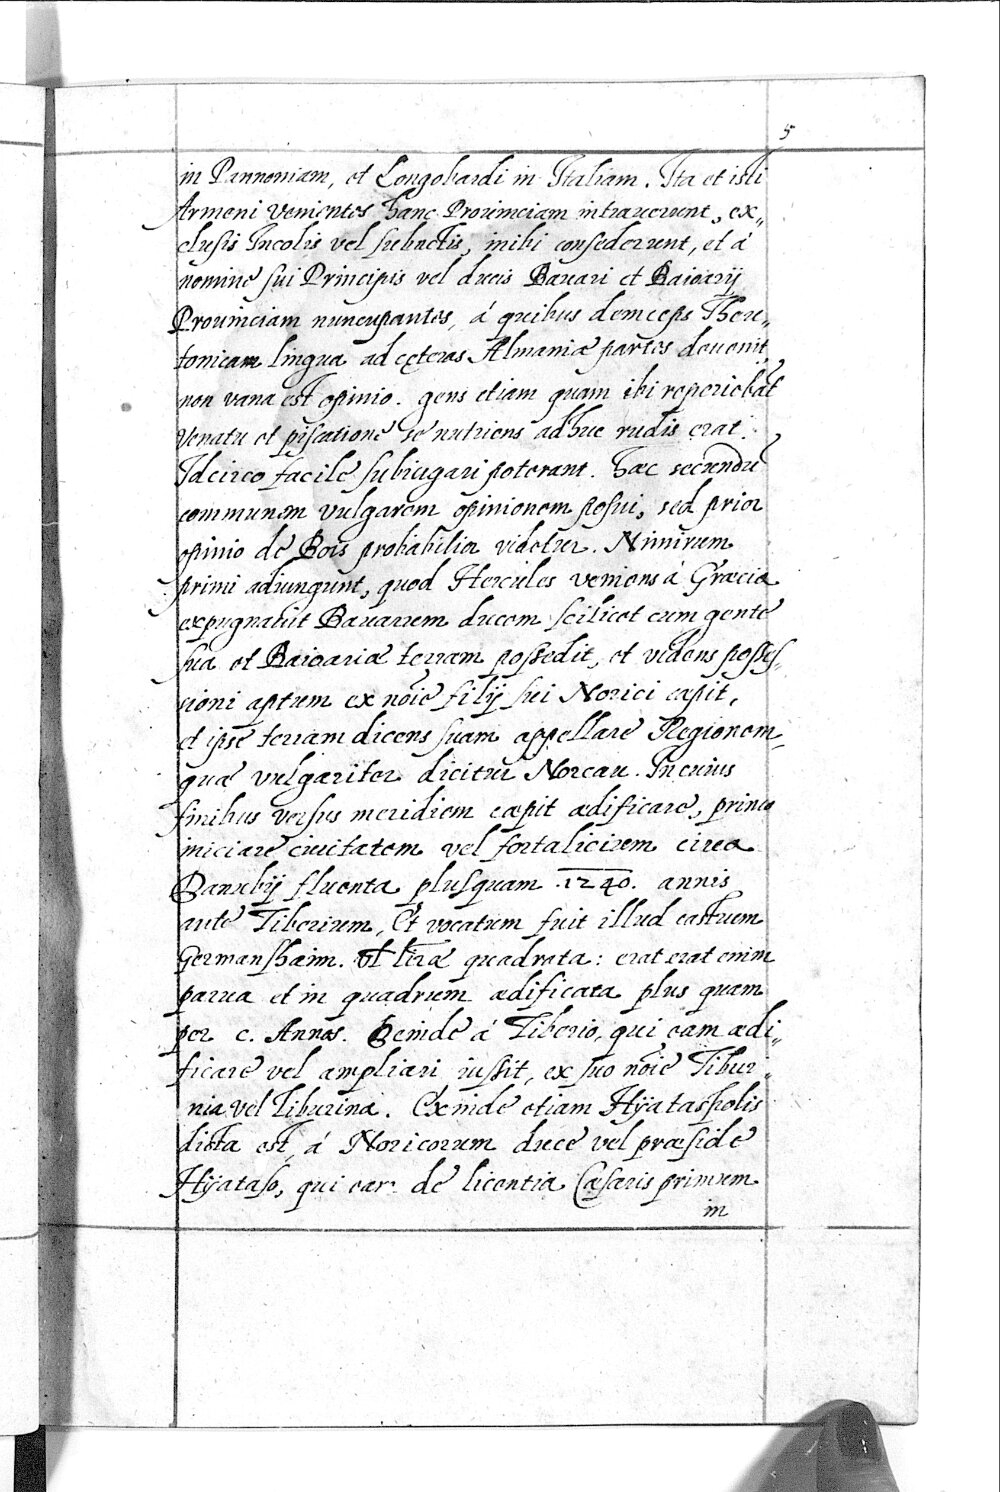 5
in Pannoniam, et Longobardi in Italiam. Ita et isti
Armeni venientes hanc Prouinciam intrauerunt, ex„
clusis Incolis vel subactis, inibi consederunt, et á
nomine sui Principis vel ducis Bauari et Baioarij
Prouinciam nuncupantes, á quibus deinceps Theu„
tonicam lingua ad cęteras Almaniæ partes deuenit,
non vana est opinio. gens etiam quam ibi reperiebāt
venatu et piscatione se nutriens adhuc rudis erat.
Idcirco facile subiugari poterant. hæc secundū
communem vulgarem opinionem posui, sed prior
opinio de Bois probabilior videtur. Nimirum
primi adiungunt, quod Hercules veniens á Græcia
expugnauit Bauarum ducem scilicet cum gente
sua et Baioariæ terram possedit, et videns posses„
sioni aptum ex nōie filij sui Norici cæpit,
et ipse terram dicens suam appellare Regionem„
quæ vulgariter dicitur Norcau. In cuius
finibus versus meridiem cæpit ædificare,
iniciare ciuitatem vel fortalicium circa
Danubij fluenta plusquam .1240. annis
ante Tiberium, Et vocatum fuit illud castrum
Germanshaim. vl quadrata: erat erat enim
parua et in quadrum ædificata plus quam
per c. Annos. Deinde á Tiberio, qui eam ædi„
ficare vel ampliari iussit, ex suo nōie Tibur„
nia vel Tiburina. Exinde etiam Hÿataspolis
dicta est, á Noricorum duce vel præside
Hÿataso, qui ear de licentia Cæsaris primum
in